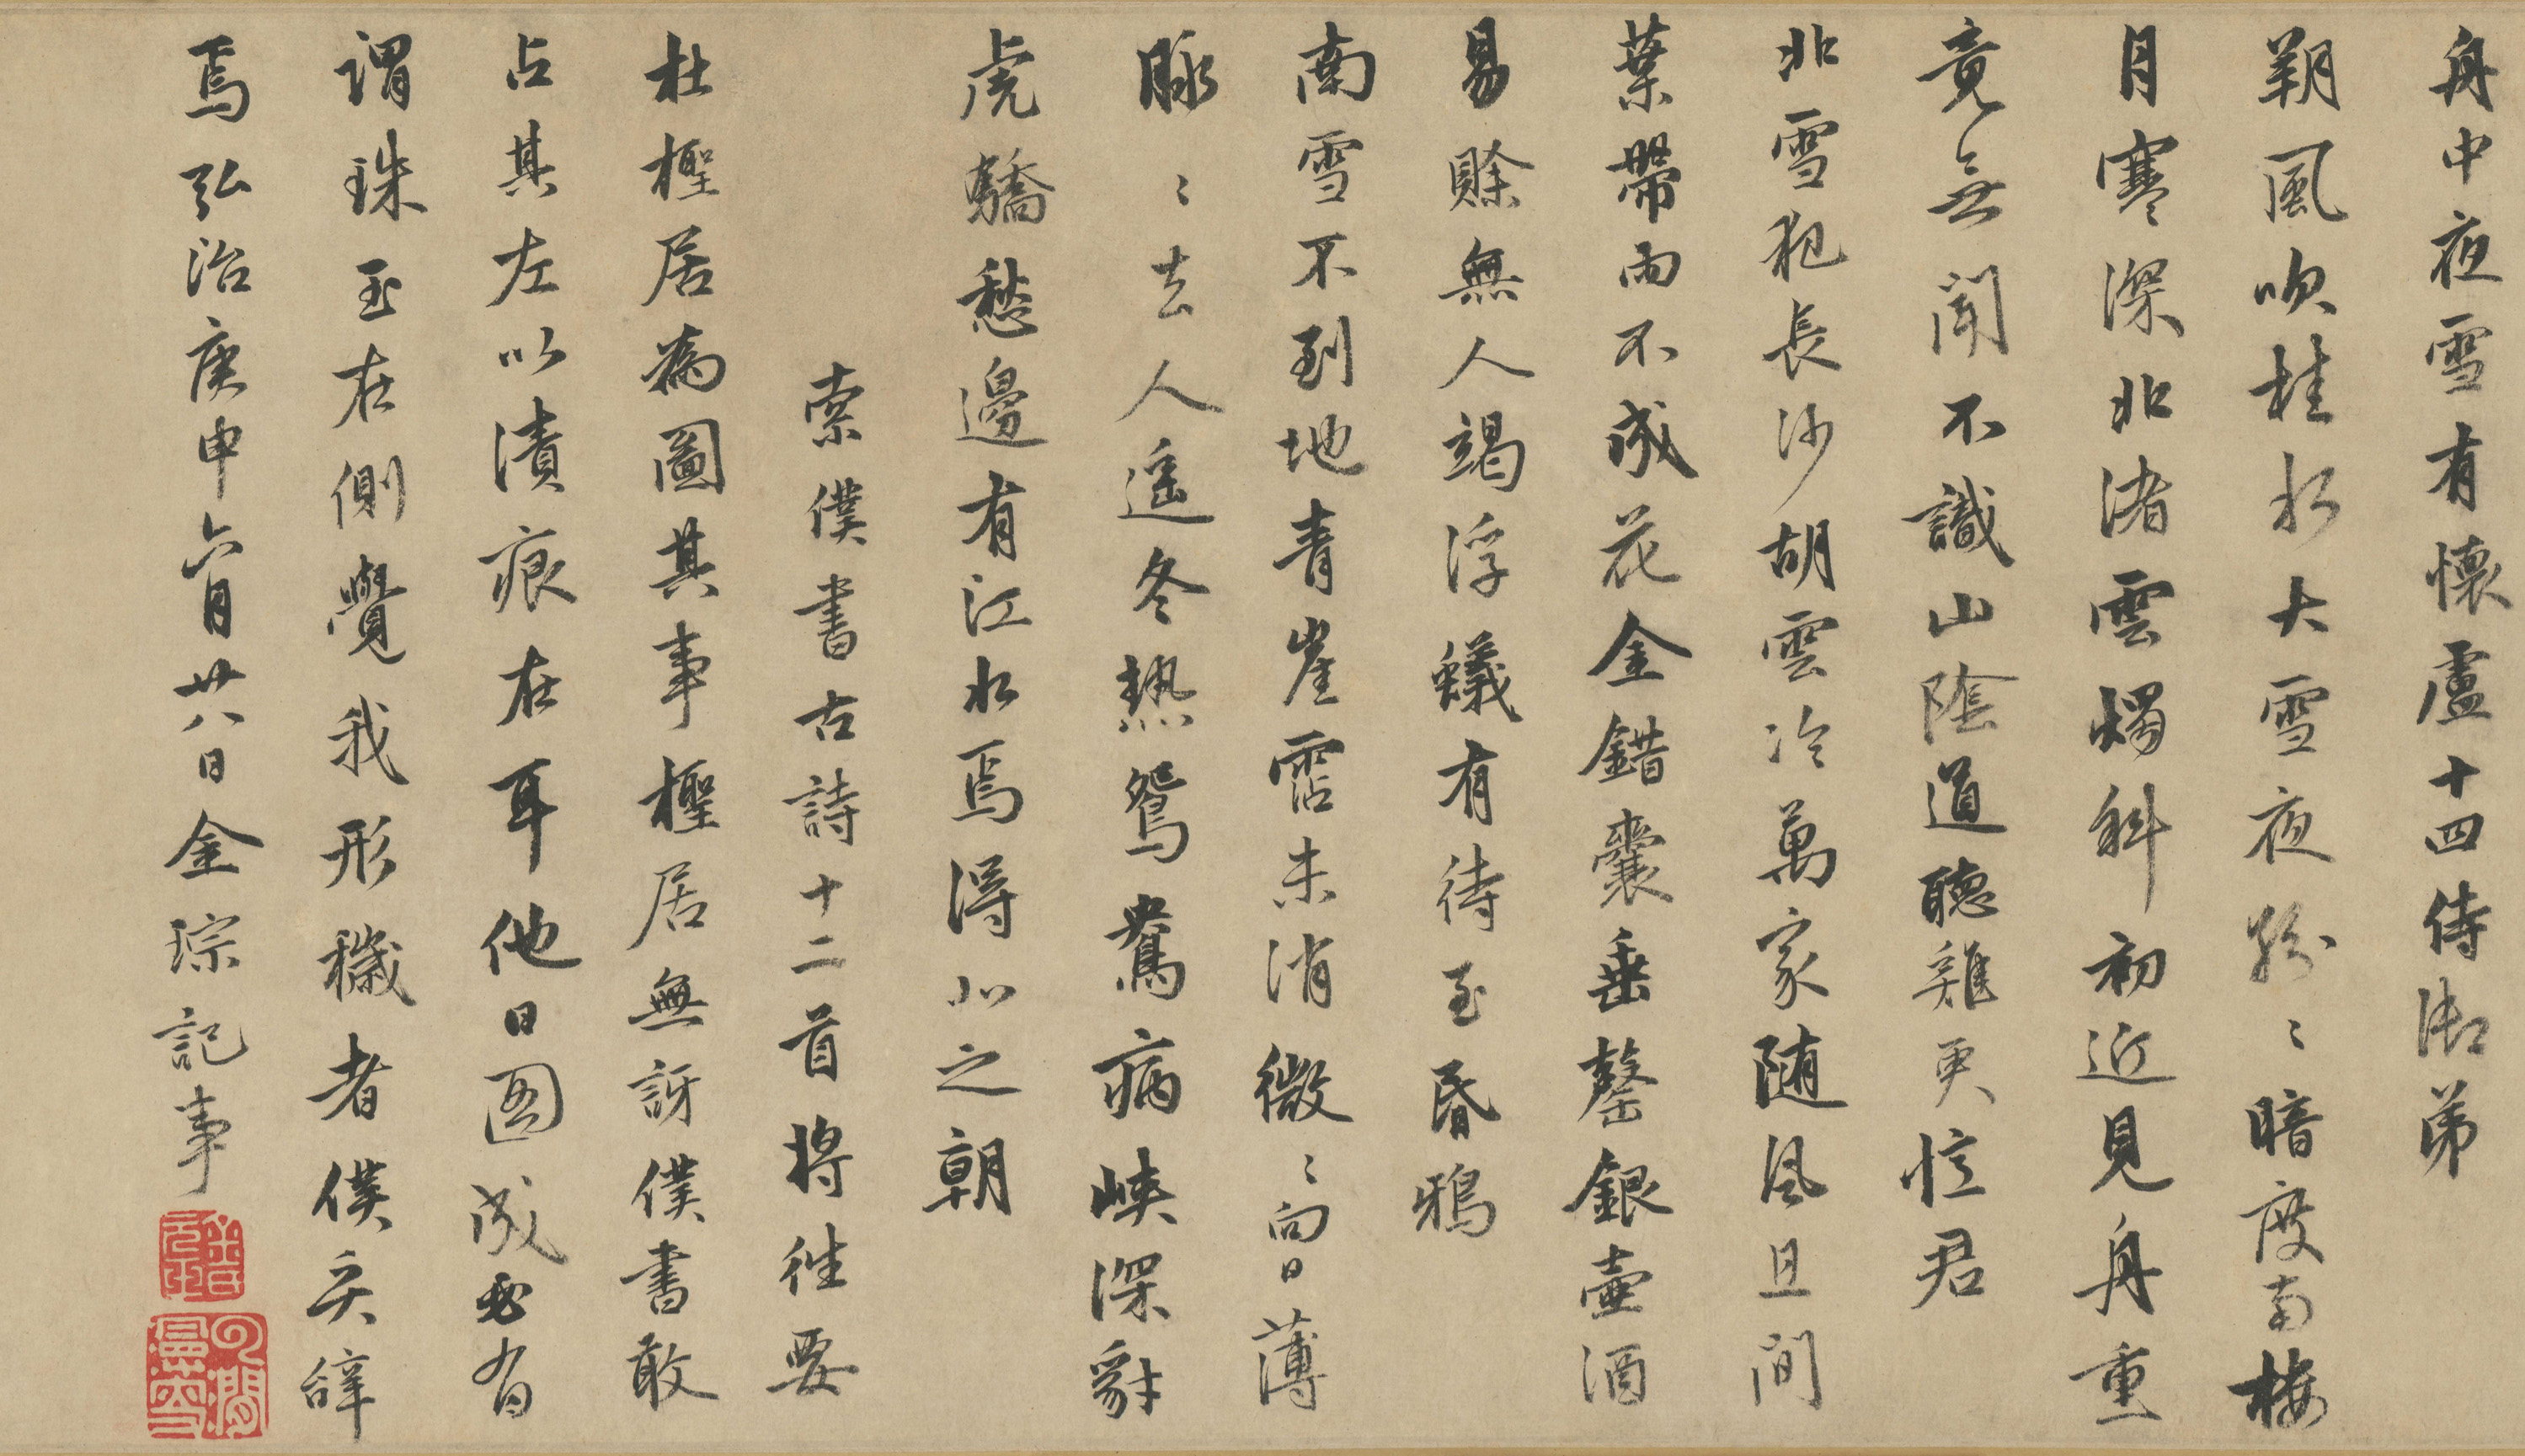 舟中夜雪有懷盧十四侍御弟
朔風吹桂水大雪夜紛〻暗度南樓
月寒深北渚雲燭斜初近見舟重
竟無聞不識山陰道聽雞更憶君
北雪犯長沙胡雲冷萬家随風且间
葉帶雨不成花金錯囊垂罄銀壺酒
易賒無人竭浮蟻有待至昏鴉
南雪不到地青崖霑未消微〻向日薄
脉〻去人遥冬熱鴛鴦病峽深豺
虎驕愁邊有江水焉得北之朝
索僕書古詩十二首將徃要
杜檉居為圖其事檉居無訝僕書敢
占其左以漬痕在耳他日圖成必有
謂珠玉在側覺我形穢者僕奚辭
焉弘治庚申六月廿八日金琮記事